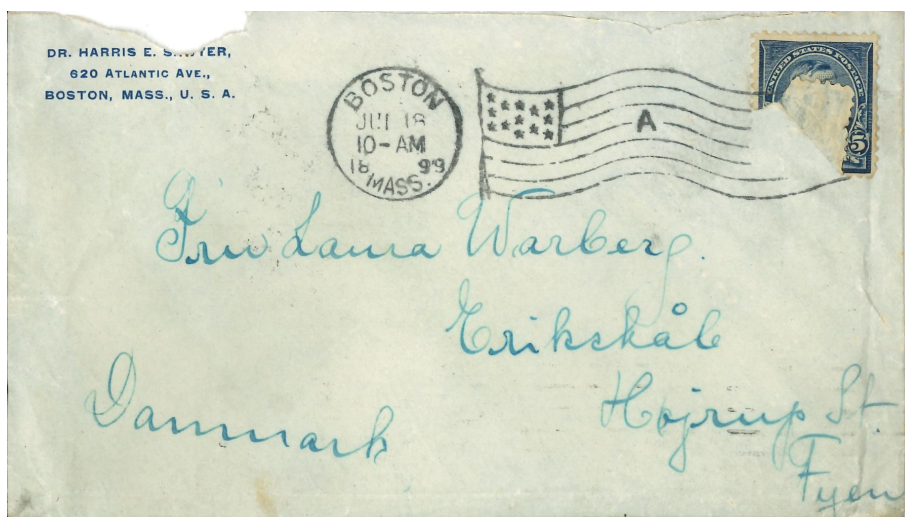 DR. HARRIS E. SAWYER,
620 ATLANTIC AVE.,
BOSTON, MASS., U. S. A.
BOSTON
JUL 18
10-AM
18 99
MASS.
A
UNITED STATES POSTAGE
5
Fru Laura Warberg.
Erikshåb
Højrup St
Fyen
Danmark